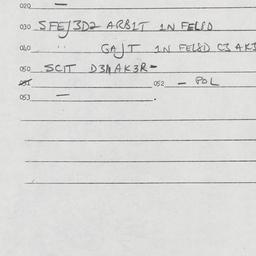 020 —
030 SFEJ3D2 ARBIT IN FELSD
040 " GAJT IN FEL8D C3 AK3
050 SCIT D3MAK3R-
051 052 - POL
053 — .